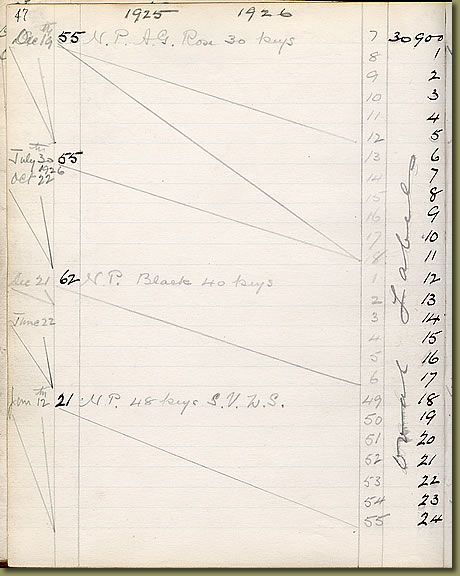 47 1925 1926
Dec 19th 55 N.P. A.G. Rose 30 keys 7 30900
8 1
9 2
10 3
11 4
12 5
July 30th 55 13 6
1926
Oct 22 14 7
15 8
16 9
17 10
8 11
Dec 21 62 N.P. Black 40 keys 1 12
2 13
June 22 3 14
4 15
5 16
6 17
Jan 12th 21 N.P. 48 keys S.V.W.S. 49 18
50 19
51 20
52 21
53 22
54 23
55 24
oval Label